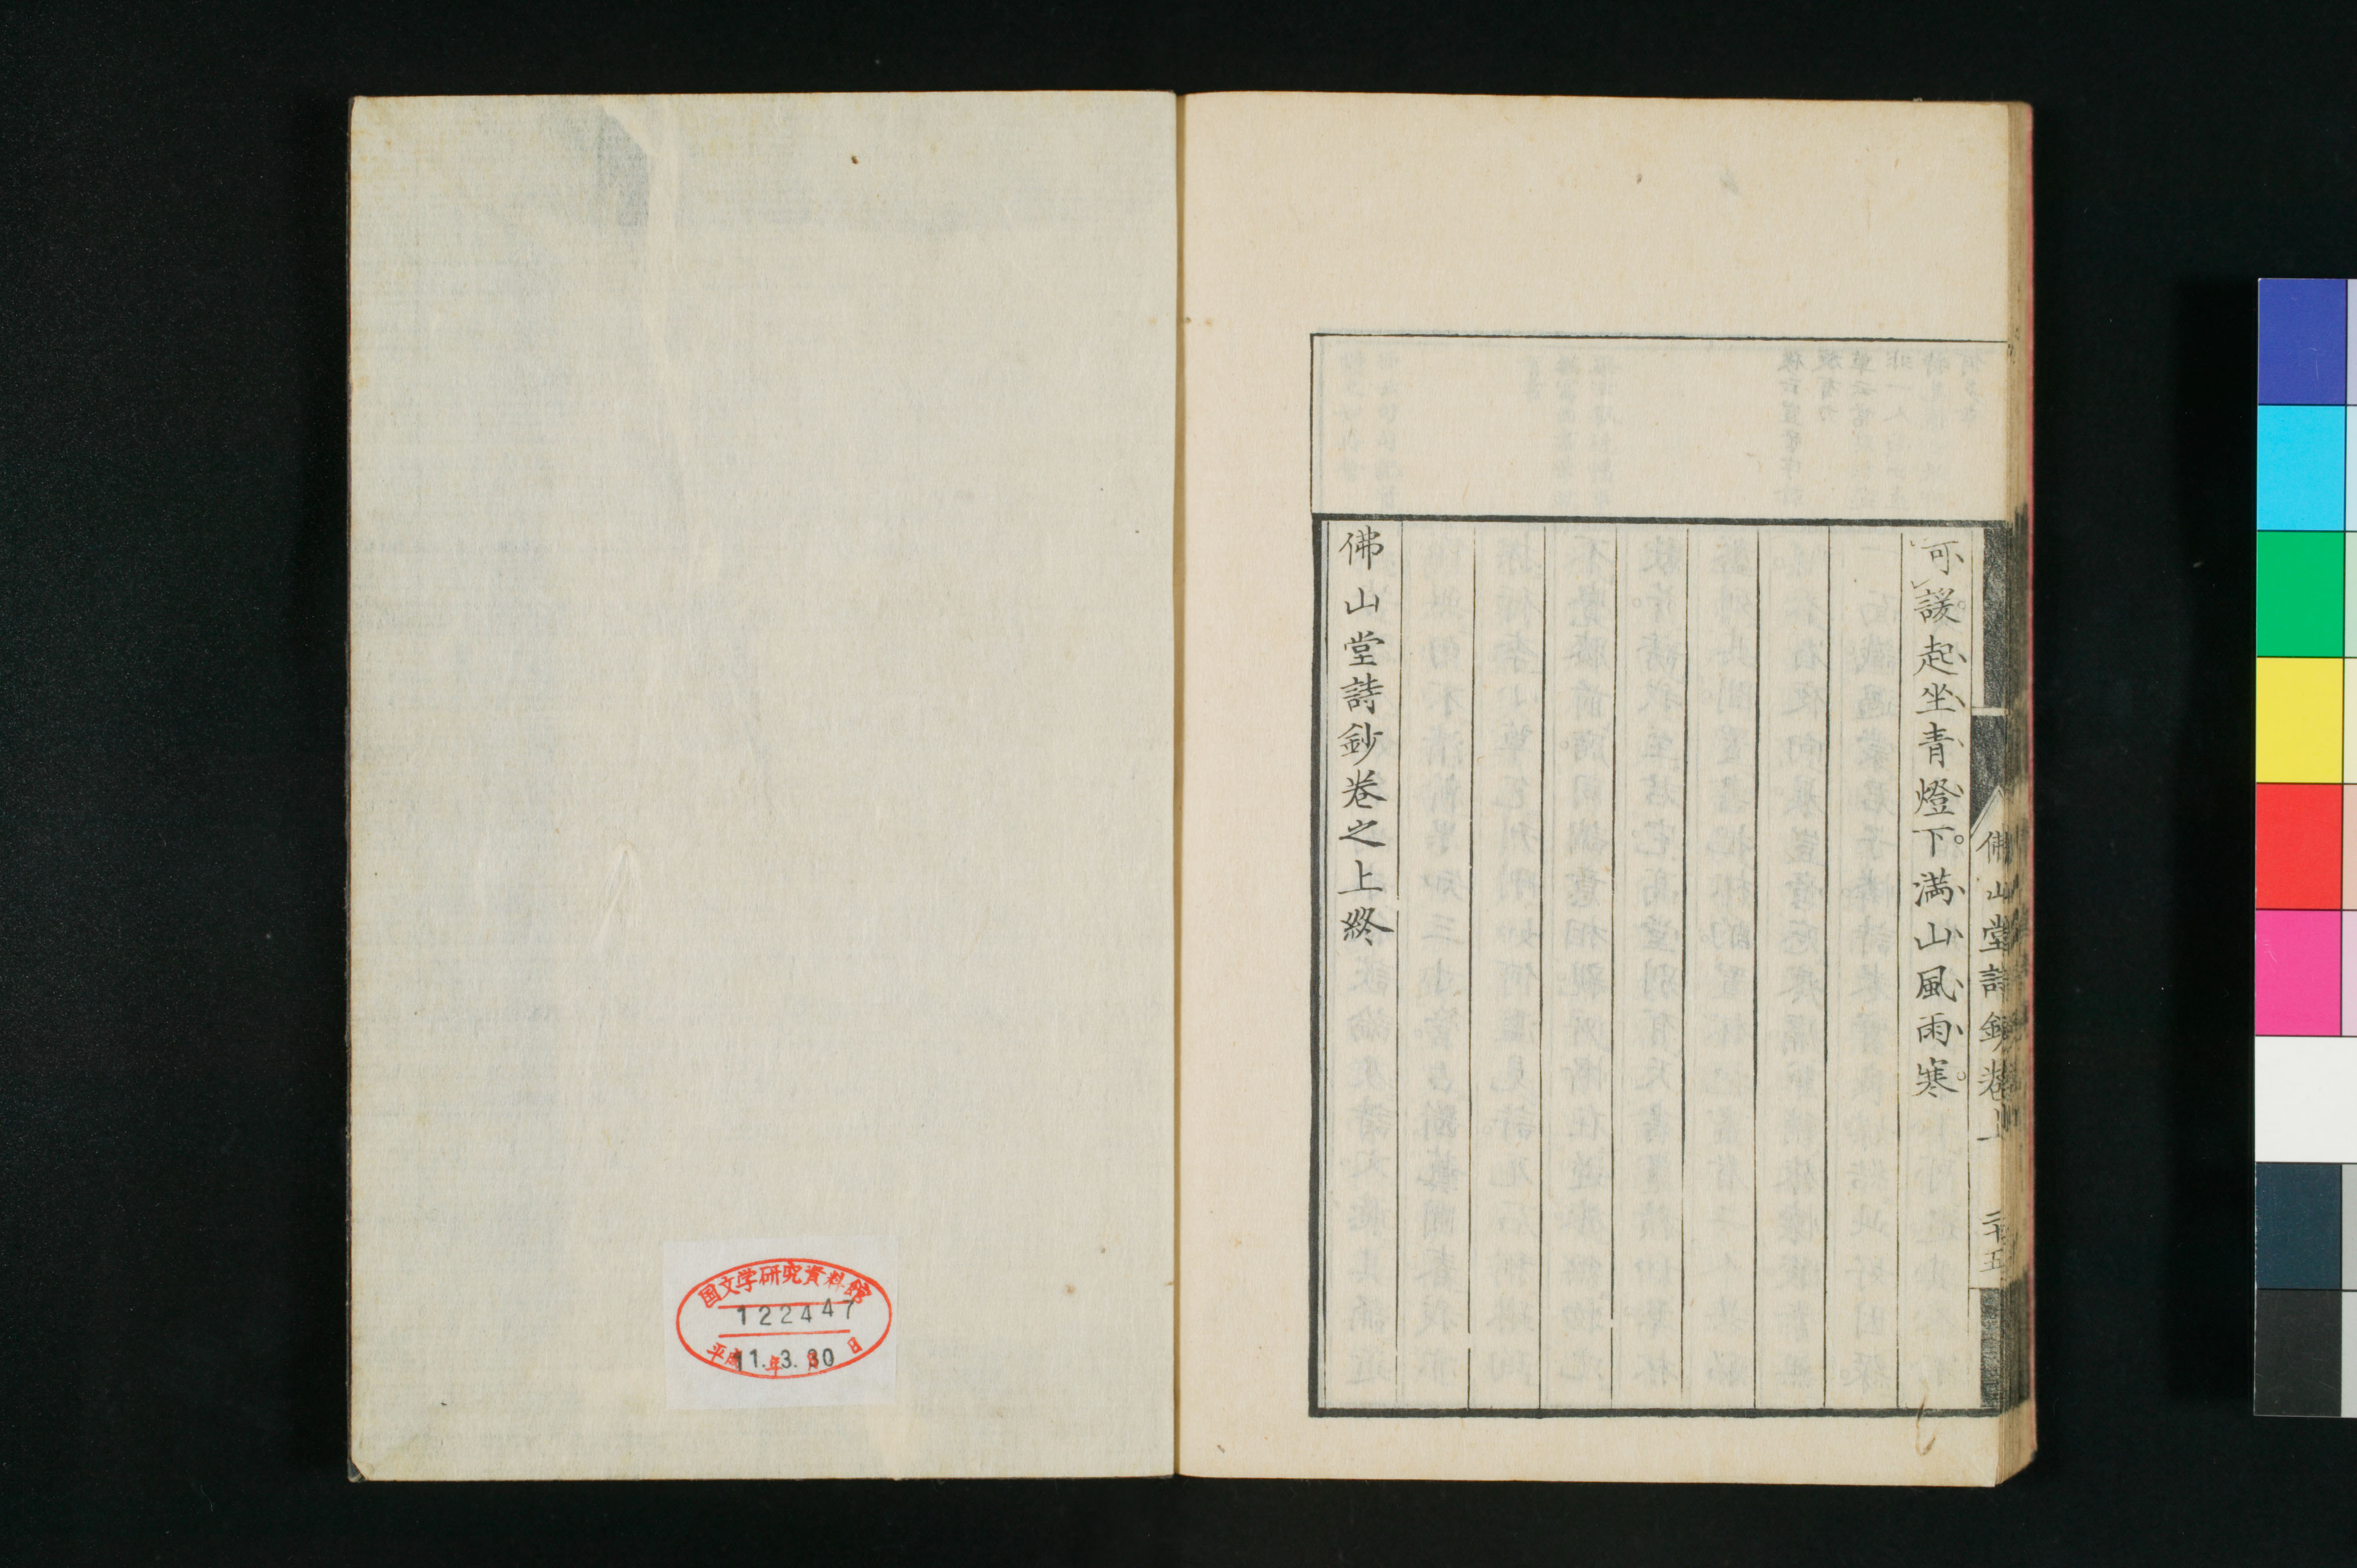 可諼起坐青燈下。滿山風雨寒。
佛山堂詩鈔卷之上終
佛山堂詩鈔卷上
二十五
国文学研究資料館
122447
平成 年 月 日
11. 3. 30